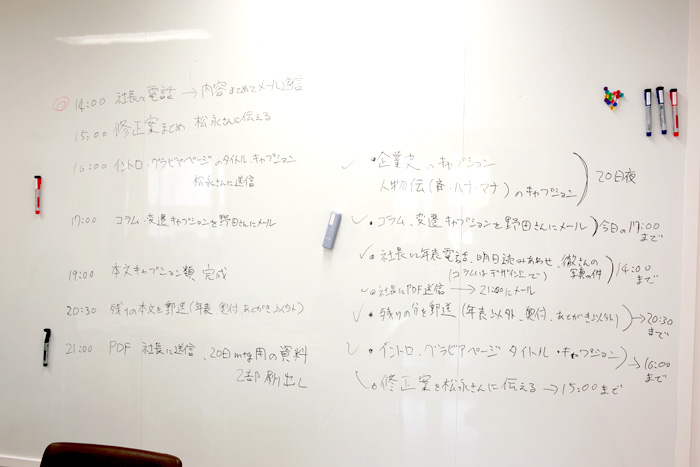 14:00 社長に電話 → 内容まとめてメール送信
15:00 修正案まとめ 松永さんに伝える
16:00 イントロ・グラビアページのタイトル キャプション
松永さんに送信
17:00 コラム・変遷 キャプションを野田さんにメール
19:00 本文キャプション類 完成
20:30 残りの本文を郵送(年表 奥付、あとがき以外)
21:00 PDF 社長に送信、20日mtg用の資料
2部刷出し
・企業史のキャプション
人物伝( ハナ・マナ)のキャプション
20日夜
・コラム、変遷 キャプションを野田さんにメール 今日の17:00
まで
社長に年表電話、明日読みあわせ、徹さんの
写真の件
(コラムはデザイン上で)
14:00
まで
社長にPDF送信 → 21:00にメール
・残りの分を郵送(年表以外、奥付、あとがき以外) → 20:30
まで
・イントロ、グラビアページ タイトル・キャプション) → 16:00
まで
修正案を松永さんに伝える → 15:00まで